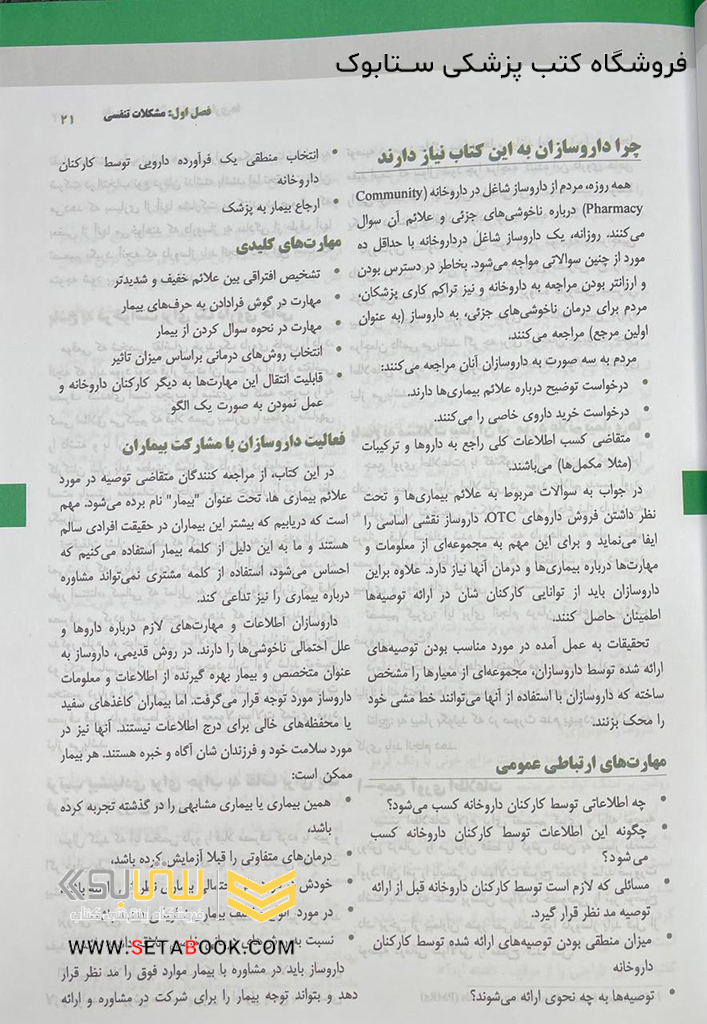 فروشگاه کتب پزشکی ستابوک
فصل اول: مشکلات تنفسی ۲۱
چرا داروسازان به این کتاب نیاز دارند
همه روزه، مردم از داروساز شاغل در داروخانه (Community
Pharmacy) درباره ناخوشی‌های جزئی و علائم آن سوال
می‌کنند. روزانه، یک داروساز شاغل درداروخانه با حداقل ده
مورد از چنین سوالاتی مواجه می‌شود. بخاطر در دسترس بودن
و ارزانتر بودن مراجعه به داروخانه و نیز تراکم کاری پزشکان،
مردم برای درمان ناخوشی‌های جزئی، به داروساز (به عنوان
اولین مرجع) مراجعه می‌کنند.
مردم به سه صورت به داروسازان آنان مراجعه می‌کنند:
• درخواست توضیح درباره علائم بیماری‌ها دارند.
• درخواست خرید داروی خاصی را می‌کنند.
• متقاضی کسب اطلاعات کلی راجع به داروها و ترکیبات
(مثلا مکمل‌ها) می‌باشند.
در جواب به سوالات مربوط به علائم بیماری‌ها و تحت
نظر داشتن فروش داروهای OTC، داروساز نقشی اساسی را
ایفا می‌نماید و برای این مهم به مجموعه‌ای از معلومات و
مهارت‌ها درباره بیماری‌ها و درمان آنها نیاز دارد. علاوه براین
داروسازان باید از توانایی کارکنان شان در ارائه توصیه‌ها
اطمینان حاصل کنند.
تحقیقات به عمل آمده در مورد مناسب بودن توصیه‌های
ارائه شده توسط داروسازان، مجموعه‌ای از معیارها را مشخص
ساخته که داروسازان با استفاده از آنها می‌توانند خط مشی خود
را محک بزنند.
مهارت‌های ارتباطی عمومی
• چه اطلاعاتی توسط کارکنان داروخانه کسب می‌شود؟
• چگونه این اطلاعات توسط کارکنان داروخانه کسب
می‌شود؟
• مسائلی که لازم است توسط کارکنان داروخانه قبل از ارائه
توصیه مد نظر قرار گیرد.
• میزان منطقی بودن توصیه‌های ارائه شده توسط کارکنان
داروخانه
• توصیه‌ها به چه نحوی ارائه می‌شوند؟
• انتخاب منطقی یک فرآورده دارویی توسط کارکنان
داروخانه
• ارجاع بیمار به پزشک
مهارت‌های کلیدی
• تشخیص افتراقی بین علائم خفیف و شدیدتر
• مهارت در گوش فرادادن به حرف‌های بیمار
• مهارت در نحوه سوال کردن از بیمار
• انتخاب روش‌های درمانی براساس میزان تاثیر
• قابلیت انتقال این مهارت‌ها به دیگر کارکنان داروخانه و
عمل نمودن به صورت یک الگو
فعالیت داروسازان با مشارکت بیماران
در این کتاب، از مراجعه کنندگان متقاضی توصیه در مورد
علائم بیماری ها، تحت عنوان "بیمار" نام برده می‌شود. مهم
است که دریابیم که بیشتر این بیماران در حقیقت افرادی سالم
هستند و ما به این دلیل از کلمه بیمار استفاده می‌کنیم که
احساس می‌شود، استفاده از کلمه مشتری نمی‌تواند مشاوره
درباره بیماری را نیز تداعی کند.
داروسازان اطلاعات و مهارت‌های لازم درباره داروها و
علل احتمالی ناخوشی‌ها را دارند. در روش قدیمی، داروساز به
عنوان متخصص و بیمار بهره گیرنده از اطلاعات و معلومات
داروساز مورد توجه قرار می‌گرفت. اما بیماران کاغذهای سفید
یا محفظه‌های خالی برای درج اطلاعات نیستند. آنها نیز در
مورد سلامت خود و فرزندان شان آگاه و خبره هستند. هر بیمار
ممکن است:
• همین بیماری یا بیماری مشابهی را در گذشته تجربه کرده
باشد،
• درمان‌های متفاوتی را قبلا آزمایش کرده باشد،
• خودش در بیماری
• در مورد انواع بیماری
• نسبت به
داروساز باید در مشاوره با بیمار موارد فوق را مد نظر قرار
دهد و بتواند توجه بیمار را برای شرکت در مشاوره و ارائه
ستابوک
فروشگاه کتاب
WWW.SETABOOK.COM